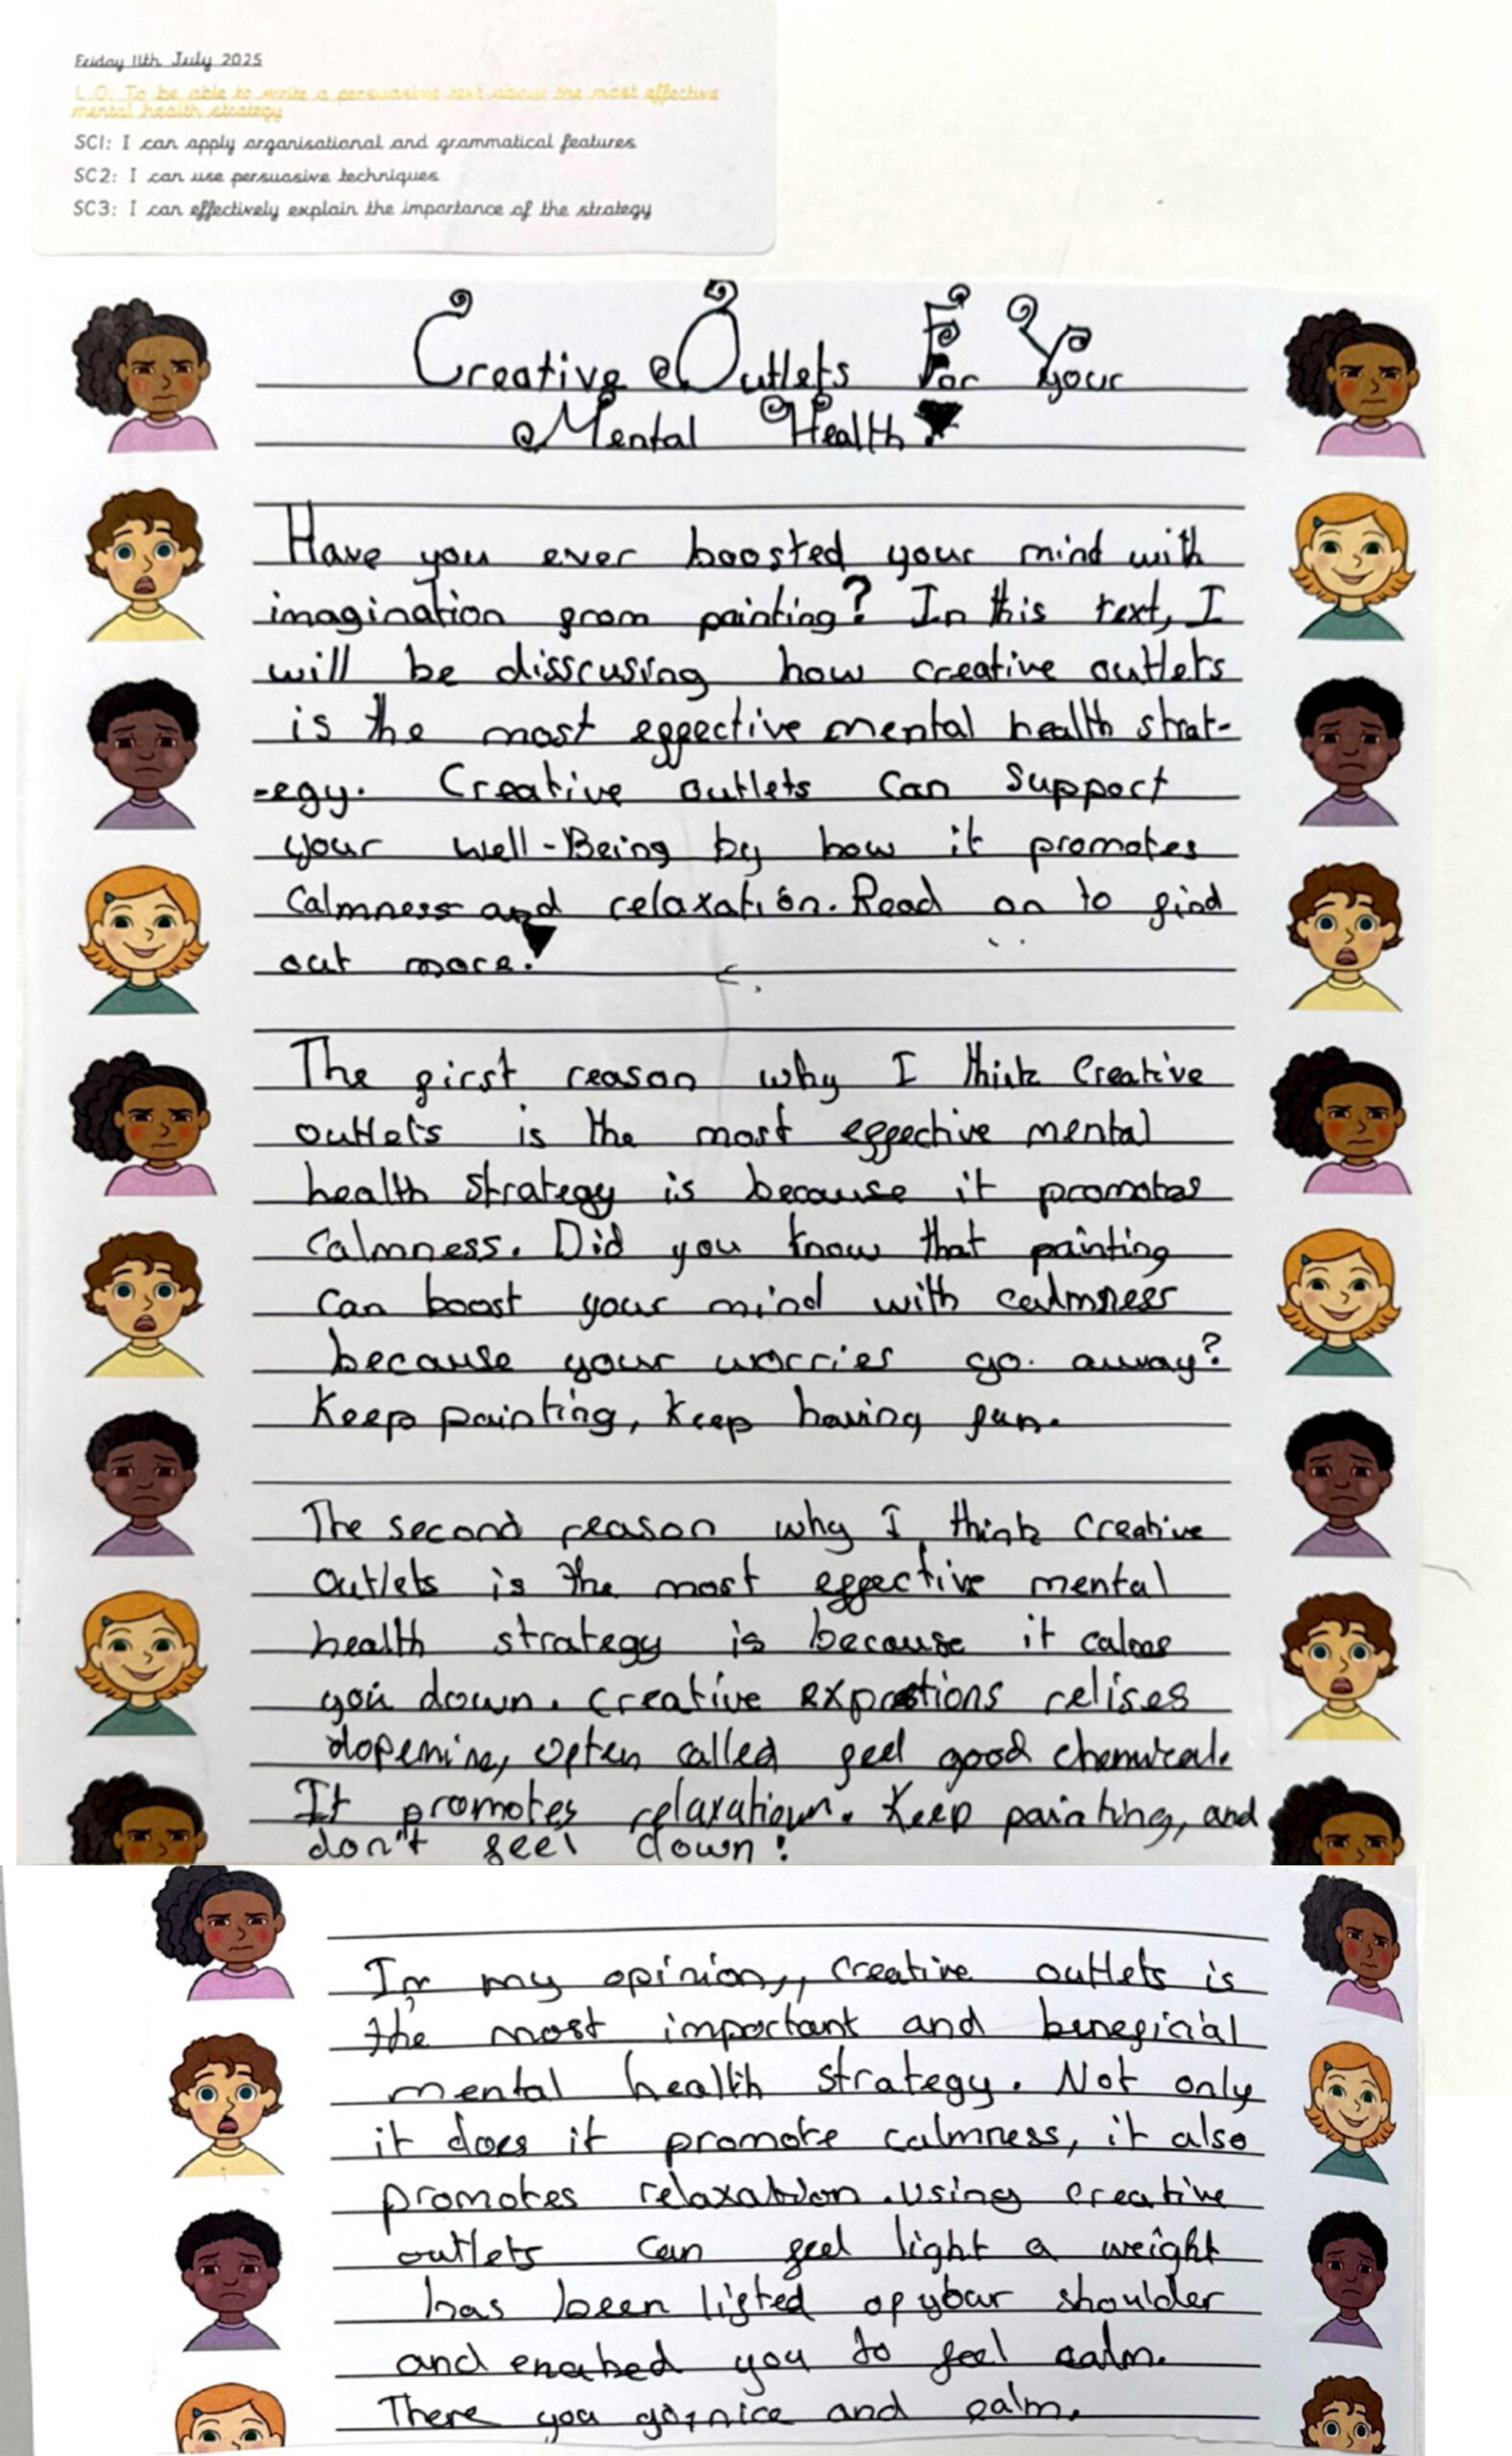 Friday 11th July 2025
L.O: To be able to write a persuasive text about the most effective
mental health strategy
SC1: I can apply organisational and grammatical features
SC2: I can use persuasive techniques
SC3: I can effectively explain the importance of the strategy
Creative Outlets For Your
Mental Health!
Have you ever boosted your mind with
imagination from painting? In this text, I
will be disscusing how creative outlets
is the most effective mental health strat-
-egy. Creative outlets can support
your well-Being by how it promotes
calmness and relaxation. Read on to find
out more!
The first reason why I think creative
outlets is the most effective mental
health strategy is because it promotes
calmness. Did you know that painting
can boost your mind with calmness
because your worries go away?
Keep painting, keep having fun.
The second reason why I think creative
outlets is the most effective mental
health strategy is because it calms
you down. creative relises
dopemine, often called feel good chemicals.
It promotes relaxation. Keep painting, and
don't feel down!
In my opinion, creative outlets is
the most important and beneficial
mental health strategy. Not only
it does it promote calmness, it also
promotes relaxation. Using creative
outlets can feel light a weight
has been lifted of your shoulder
and enabed you to feel calm.
There you go, nice and calm.